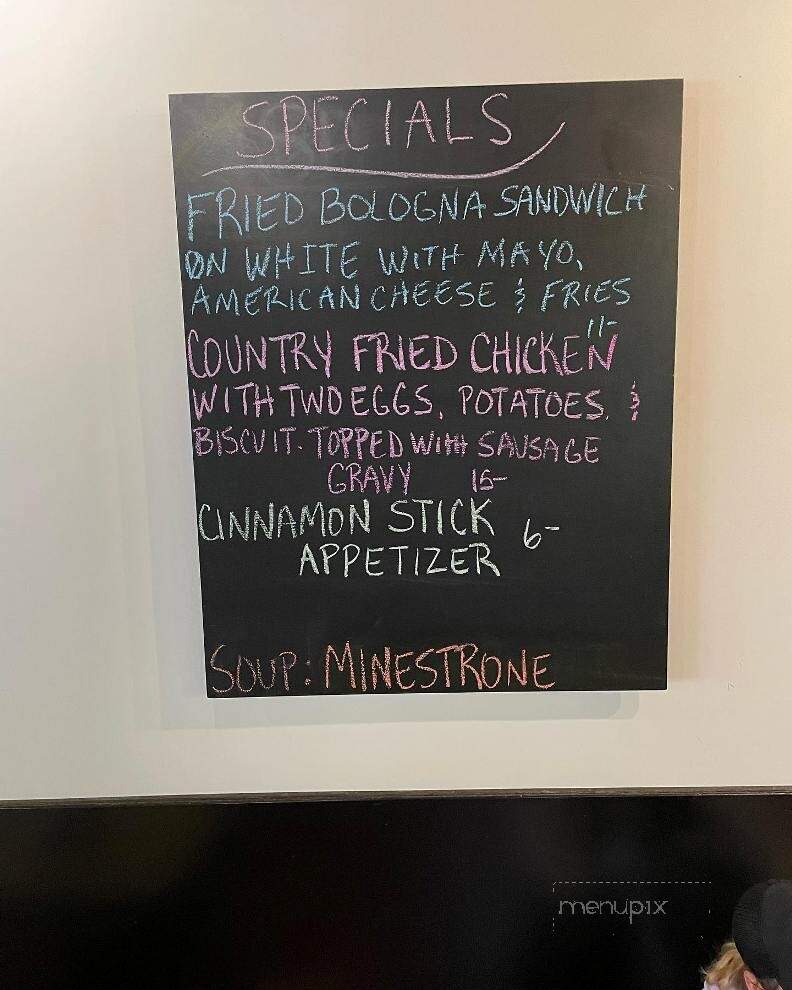 SPECIALS
FRIED BOLOGNA SANDWICH
ON WHITE WITH MAYO,
AMERICAN CHEESE & FRIES
11-
COUNTRY FRIED CHICKEN
WITH TWO EGGS, POTATOES, &
BISCUIT. TOPPED WITH SAUSAGE
GRAVY 15-
CINNAMON STICK 6-
APPETIZER
SOUP: MINESTRONE
menupix